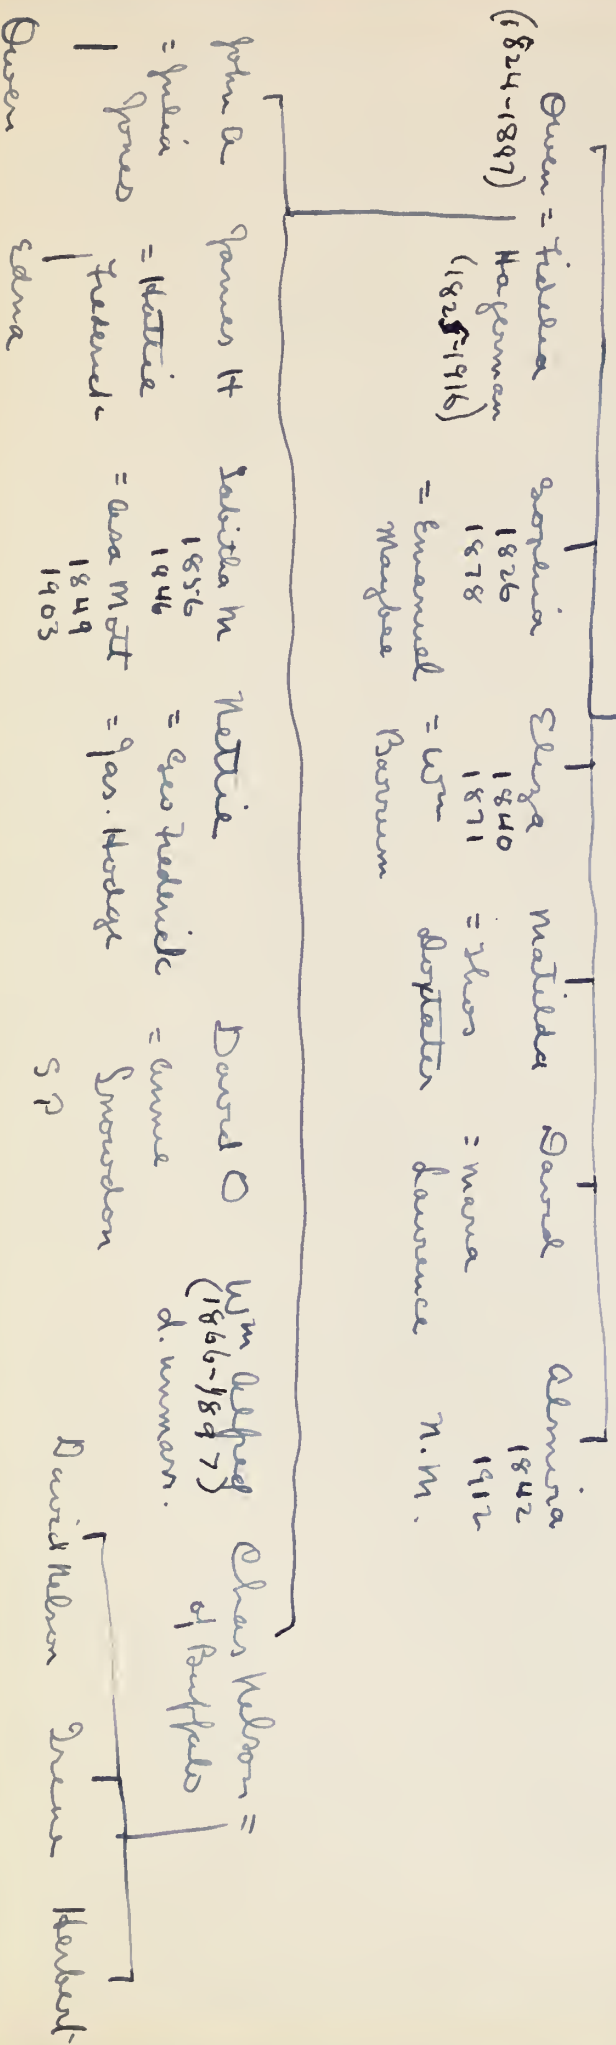 Owen = Fidelia
(1824-1897)
Hagerman
(1825-1916)
Sophia
1826
1878
= Emanuel
Maybee
Eliza
1840
1871
= Wm
Barnum
Matilda
= Thos
Doxtater
David
= Maria
Lawrence
Almira
1842
1912
N.M.
John A
= Julia
Jones
Owen
James H
= Hattie
Frederick
Edna
Tabitha M
1856
1946
= Asa Mott
1849
1903
Nettie
= Geo Frederick
= Jas. Hodge
David O
= Annie
Snowdon
S P
Wm Alfred
(1866-1897)
d. unmarr.
Chas Nelson =
of Buffalo
David Nelson
Irene
Herbert